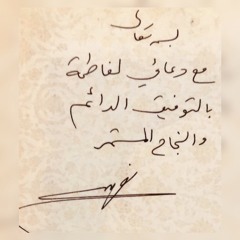 بسمه تعالى
مع دعائي لفاطمة
بالتوفيق الدائم
والنجاح المستمر